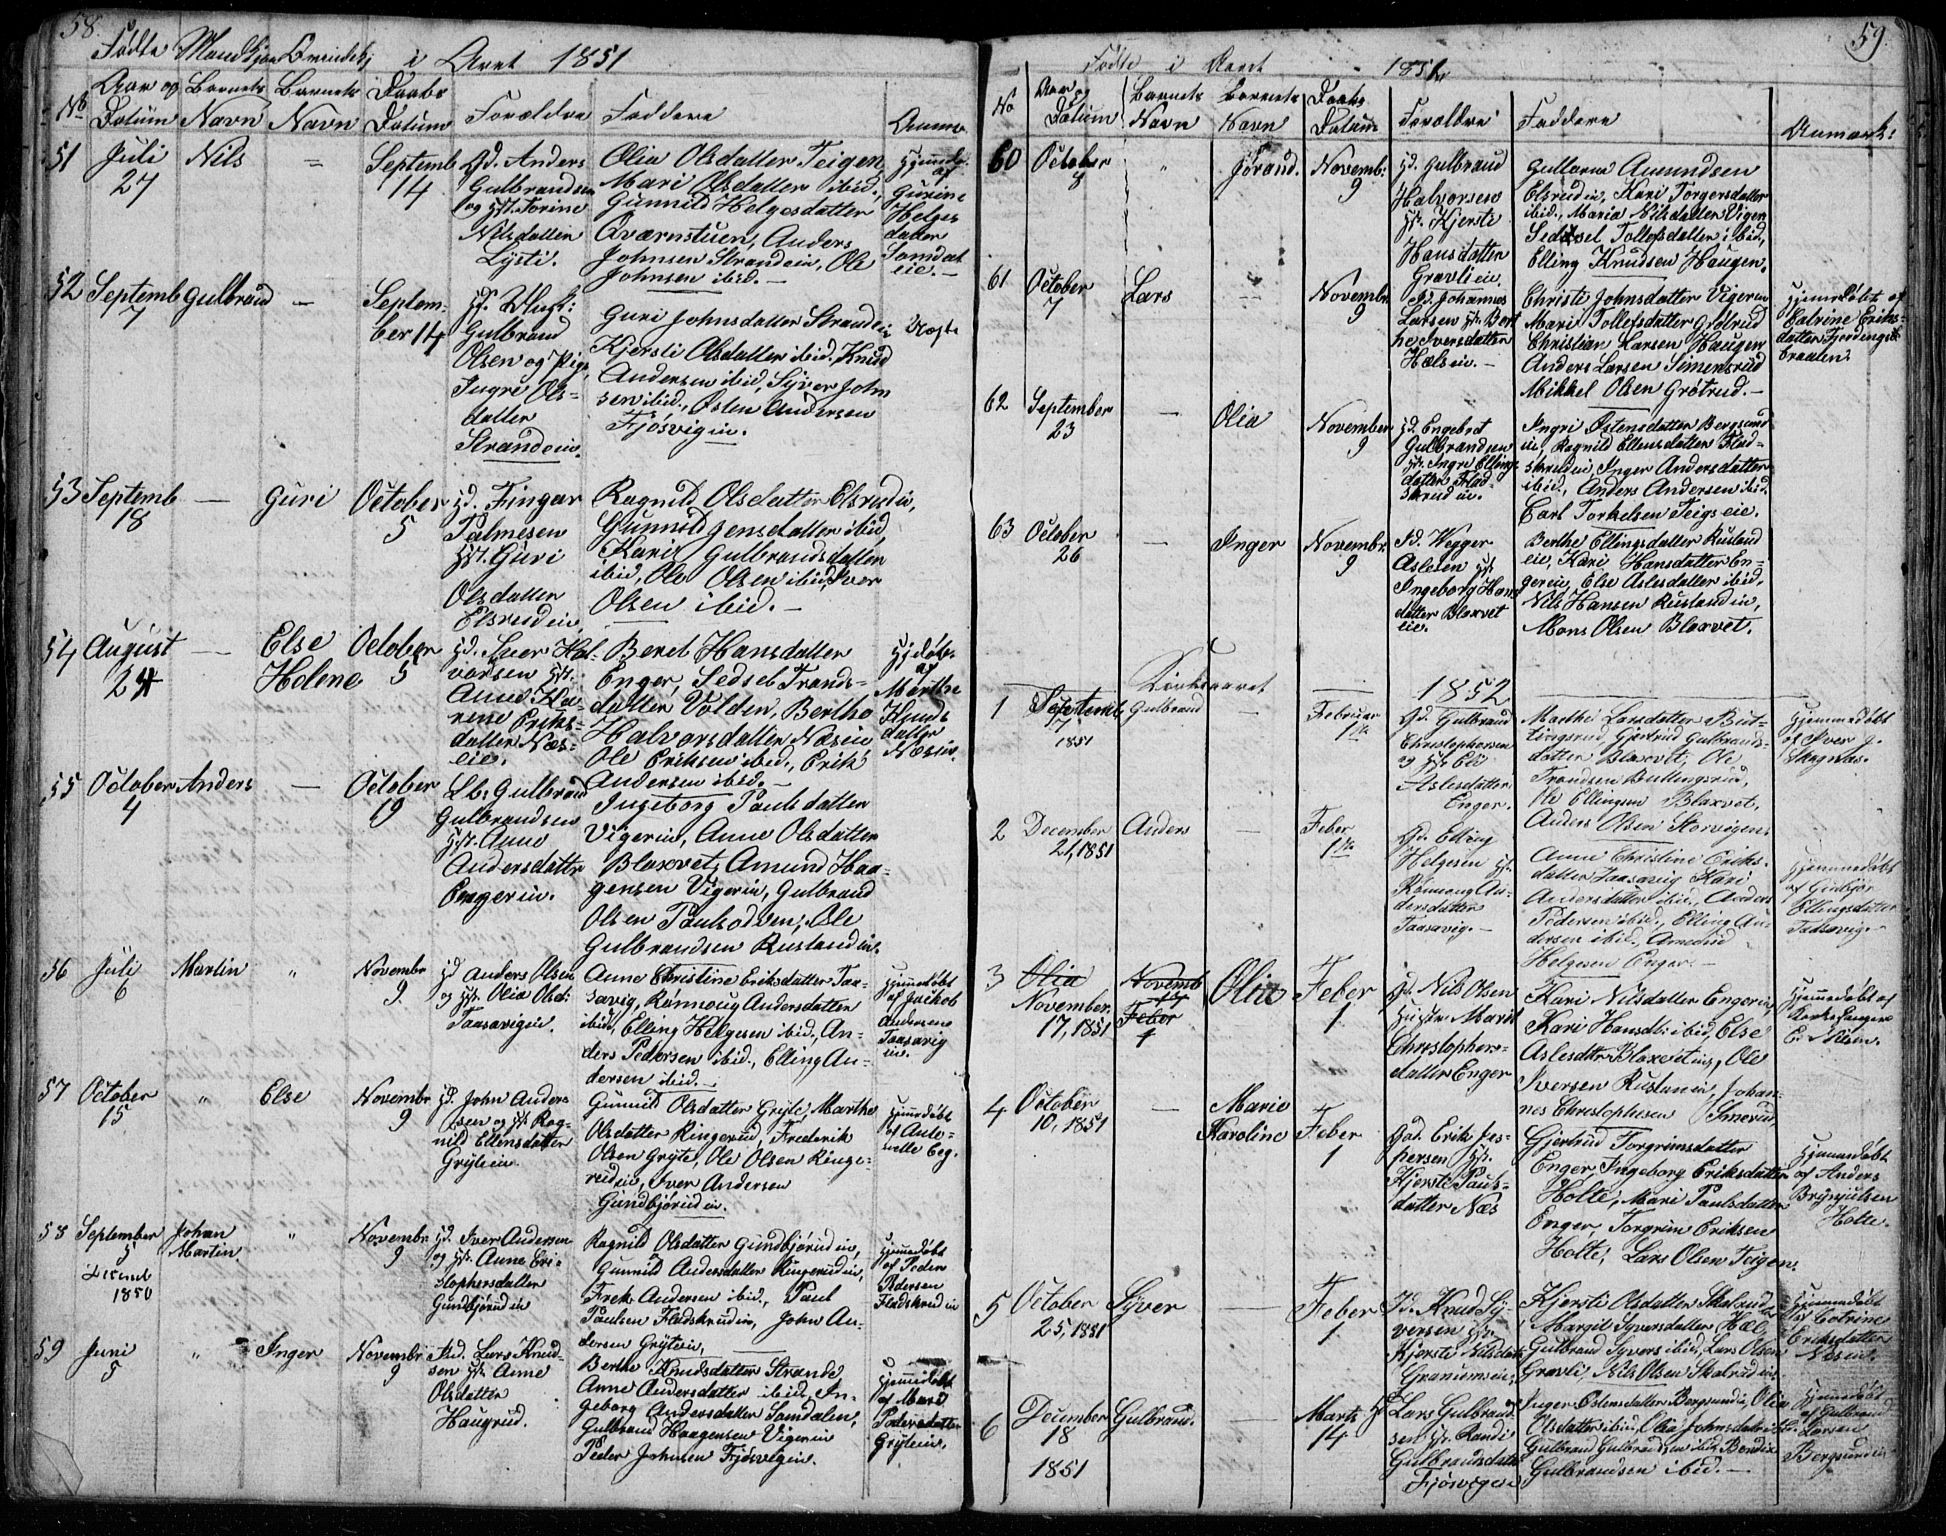 58.
Födte Mandkjøn Qvindekj i Aaret 1851
No
Aar og Datum
Barnets Navn
Barnets Navn
Daabs Datum
Forældre
Faddere
Anmæ
51 Juli 27
Nils
=
Septemb 14
Gd. Anders
Gulbrandsen
og Hst. Torine
Nilsdatter
Lysti.
Olia Olsdatter Teigen
Mari Olsdatter ibid,
Gunnild Helgesdatter
Qværnstuen, Anders
Johnsen Strandein, Ole
Johnsen ibid. —
Hjemdø.
af
Gurine
Helges
datter
Somdal
eie. —
52 Septemb 7
Gulbrand
—
Septem-
ber 14
Gulbrand
Olsen og Pige
Ingri Ols=
datter
Strandein.
Guri Johnsdatter Strandei
Kjersti Olsdatter ibid, Knud
Andersen ibid, Syver John
sen ibid., Østen Andersen
Fjøsvigein.
Uægte
53 Septemb 18
—
Guri
October 5
Hd. Fingar
Palmesen
Hst. Guri
Olsdatter
Elsrudein.
Ragnild Olsdatter Elsrudein,
Gunnild Jensdatter ibid,
Kari Gulbrandsdatter
ibid, Ole Olsen ibid, Iver
Olsen ibid. —
54 August 24
—
Else
Helene
October 5
Hd. Iver Hal-
vorsen Hst.
Anne Ka-
rine Eriks-
datter Næs-
eie.
Beret Hansdatter
Enger, Sedsel Trands-
datter Volden, Berthe
Halvorsdatter Næsein,
Ole Eriksen ibid., Erik
Andersen ibid. —
Hjdøbt
af
Marthe
Knuds
datter
Næsein.
55 October 4
Anders
—
October 19
Lb. Gulbrand
Gulbrandsen
Hst. Anne
Andersdatter
Engerein.
Ingeborg Paulsdatter
Vigerein, Anne Olsdatter
Bloxvet, Amund Haa-
gensen Vigerin, Gulbrand
Olsen Paulsodven, Ole
Gulbrandsen Rustandein.
56 Juli 6
Martin
"
Novembr 9.
Hd Anders Olsen
og Hst. Olia Olsd:
Taasavigein.
Anne Christine Eriksdatter Taa-
savig, Rønnoug Andersdatter
ibid, Elling Helgesen ibid., An-
ders Pedersen ibid., Elling An-
dersen ibid. —
Hjemmedøbt
af Jakob
Andersens
Taasavig
in.
57 October 15
"
Else
Novembr 9
Hd. John Anders
sen og Hst. Rag-
nild Ellensdatter
Grytein.
Gunnild Olsdatter Gryte, Marthe
Olsdatter Ringerud, Frederik
Olsen Gryte, Ole Olsen Ringe-
rudin, Iver Andersen
Gundbjørudin.
Hjemedøbt
af Ante-
nette Eeg.
58 September 5
1850
Johan
Martin
"
Novembr 9
Hd. Iver Andersen
og Hst. Anne Cri-
stophersdatter
Gundbjørudin
Ragnild Olsdatter Gundbjørudin,
Gunnild Andersdatter Ringerudin,
Fredr. Andersen ibid., Paul
Paulsen Fladskrudin, John An-
dersen Grytein,
Hjemmedøbt
af Peder
Pedersen
Fladskrudin
59 Juni 5
"
Inger
Novembr 9
Ind. Lars Knud-
sen Hst. Anne
Olsdatter
Haugrud.
Berthe Knudsdatter Strande
Anne Andersdatter ibid, In-
geborg Andersdatter Somdalen,
Gulbrand Haagensen Vigerin
Peder Johnsen Fjøsvigein.
Hjemmedøbt
af Mari
Pedersdatter
Grytein.
59.
Födte i Aaret 1851
No
Aar og Datum
Barnets Navn
Barnets Navn
Daabs Datum
Forældre
Faddere
Anmærk:
60 October 8
"
Jørand.
Novemb: 9
Hd. Gulbrand
Halvorsen
Hst. Kjersti
Hansdatter
Gravliein.
Gullarna Amundsen
Elsrudin, Kari Torgersdatter
ibid., Maria Nilsdatter Viger
Sedsel Tollefsdatter ibid,
Elling Knudsen Haugen.
61 October 7
Lars
—
Novembr 9
Id. Johannes
Larsen Hst. Bert
he Iversdatter
Hælsein. —
Christi Johnsdatter Vigerein
Mari Tollefsdatter Grøtrud
Christian Larsen Haugen
Anders Larsen Simensrud
Mikkel Olsen Grøtrud. —
Hjemmedøbt af
Catrine Eriks-
datter Fjordings
braaten.
62 September 23
—
Olia
November 9
Hd. Engebret
Gulbrandsen
Hst. Ingri Ellings
datter Flad-
skrudin.
Ingri Østensdatter Bergsrud
in, Ragnild Ellensdatter Flad-
skrudin, Inger Andersdatter
ibid., Anders Andersen ibid.
Carl Torkelsen Teigseie.
63 October 26
—
Inger
Novembr 9
Id. Wegger
Aslesen Hst
Ingeborg Hans
datter Bloxvet
eie.
Berthe Ellingsdatter Rustand
eie, Kari Hansdatter En-
gereie, Else Aslesdatter ibid,
Nils Hansen Rustandin,
Mons Olsen Bloxvet.
Kirkeaaret 1852
1 Septemb 7 1851
Gulbrand
—
Februar 1ste
Gd. Gulbrand
Christophersen
og Hst Eli
Aslesdatter
Enger.
Marthe Larsdatter But-
tingsrud, Gjertrud Gulbrands-
datter Bloxvet, Ole
Trondsen Buttingsrud,
Ole Ellingsen Bloxvet,
Anders Olsen Storvigen.
Hjemmedøbt
af Iver J.
Skagnæs.
2 December 21, 1851
Anders
—
Feber 1ste
Gd. Elling
Helgesen Hst.
Rønnoug An-
dersdatter
Taasavig. —
Anne Christine Eriks-
datter Taasavig Kari
Andersdatter ibid., Anders
Pedersen ibid., Elling An-
dersen ibid., Amund
Helgesen Enger. —
Hjemmedøbt
af Gunbjør
Ellingsdatter
Taasavig. —
3 Olia
November.
17, 1851
Novemb
17
Feber
1
Olia
Feber 1
Gd. Nils Olsen
Hustr. Marit
Christophers-
datter Enger
Kari Nilsdatter Engerin,
Kari Hansdt: ibid, Else
Aslesdttr Bloxvetein, Ole
Iversen Rustanin, Johan-
nes Christophersen Smerud,
Hjemmedøbt af
Kirkesanger
C. Moen.
4 October 10, 1851
—
Marie
Karoline
Feber 1
Gd. Erik Jes-
persen Hst.
Kjersti Pauls-
datter Næs
Gjertrud Torgrimsdatter
Enger, Ingeborg Eriksdatter
Holte, Mari Paulsdatter
Enger, Torgrim Eriksen
Holte, Lars Olsen Teigen.
Hjemmedøbt
af Anders
Brynjulsen
Holte.
5 October 25, 1851
Syver
—
Feber 1
Id. Knud Sy-
versen Hst.
Kjersti Nilsdatt
Kjersti Olsdatter Skalrud
Margit Syversdatter Hæl,
Gulbrand Syvers ibid, Lars Olsen
Gravli, Nils Olsen Skalrudin.
Hjemmedøbt
af Catrine
Eriksdatter
6 December 18 1851
Gulbrand.
—
Marts 14
Lars Gulbrand-
sen Hst. Randi
Gulbrandsdatt
Fjøsvigein
Inger Edensdatter Bergsrudin, Olia
Olsdatter ibid, Olia Johnsdatter ibid.
Gulbrand Gulbrandsen ibid, Bendix
Gulbrandsen ibid. —
Hjemmedøbt
af Gulbrand
Larsen
Bergsrudin